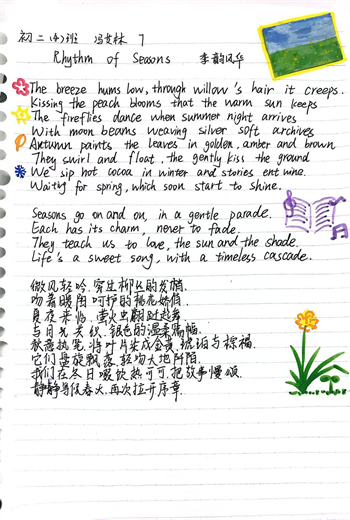 初二(4)班 冯芷林 7
Rhythm of Seasons 李韵风华
The breeze hums low, through willow's hair it creeps.
Kissing the peach blooms that the warm sun keeps
The fireflies dance when summer night arrives
With moon beams weaving silver soft archives
Autumn paints the leaves in golden, amber and brown
They swirl and float, the gently kiss the ground
We sip hot cocoa in winter and stories entwine.
Waiting for spring, which soon start to shine.
Seasons go on and on, in a gentle parade.
Each has its charm, never to fade.
They teach us to love, the sun and the shade.
Life's a sweet song, with a timeless cascade.
微风轻吟,穿过柳丝的发梢.
吻着暖阳呵护的桃花娇俏.
夏夜来临,萤火虫翩跹起舞.
与月光交织,银色的温柔篇幅.
秋意执笔,将叶片染成金黄、琥珀与棕褐.
它们盘旋飘落,轻吻大地
我们在冬日啜饮热可可,把故事慢颂.
静静等候春天,再次拉开序章.